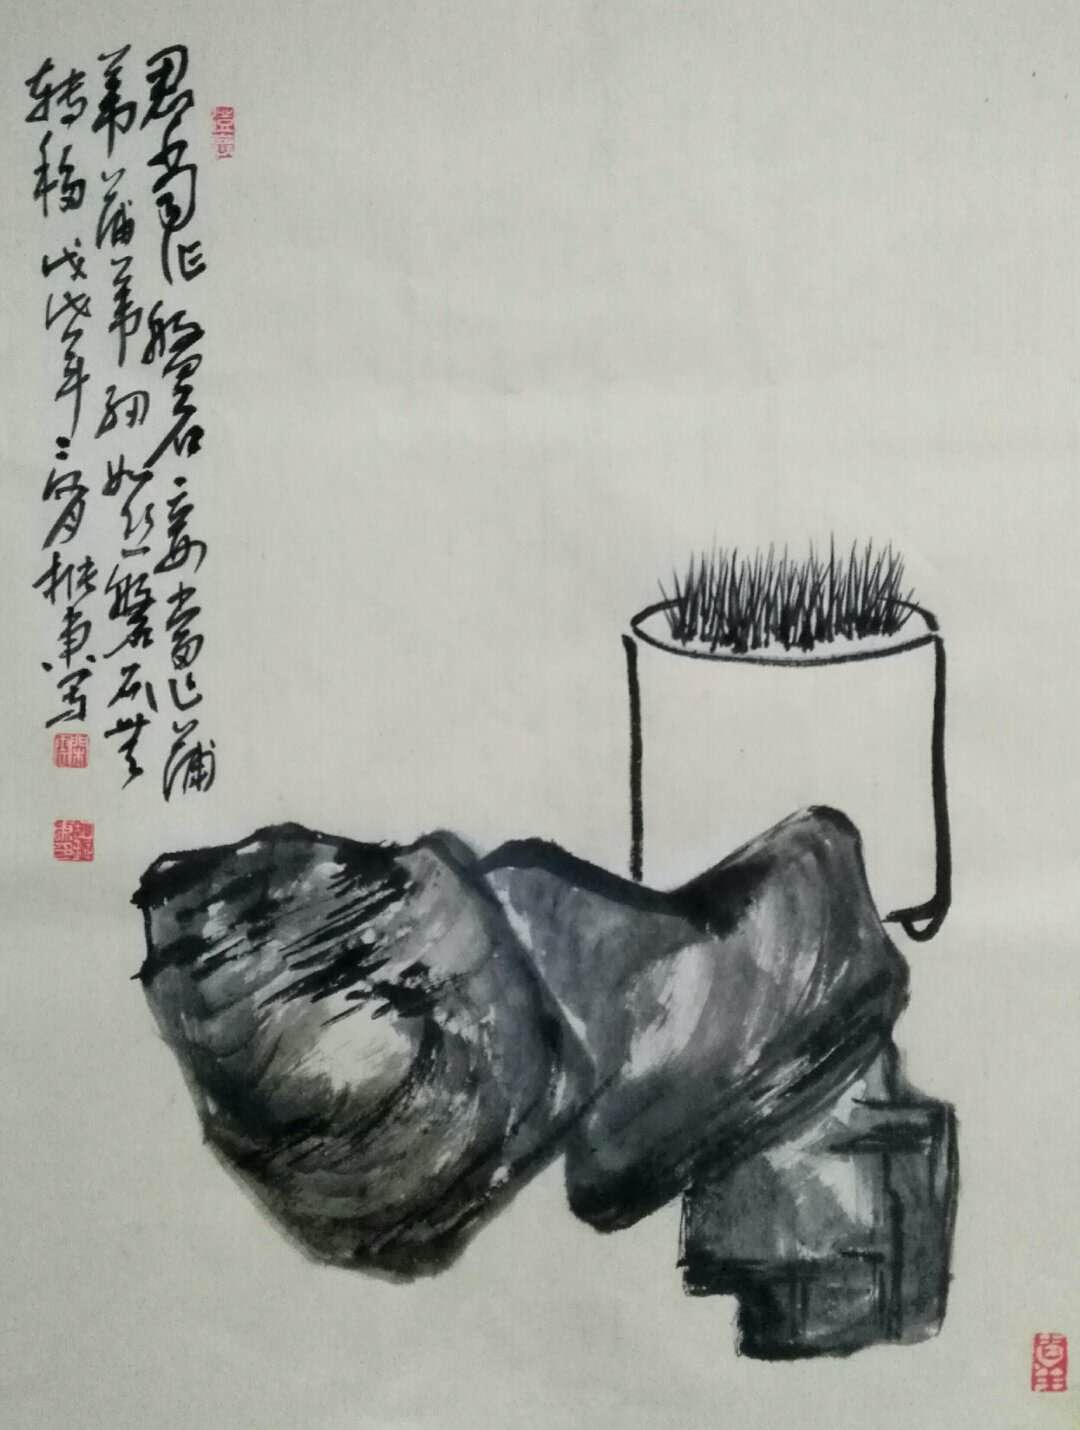 君当作磐石妾当作蒲
苇蒲苇纫如丝磐石无
转移戊戌年三月振东写